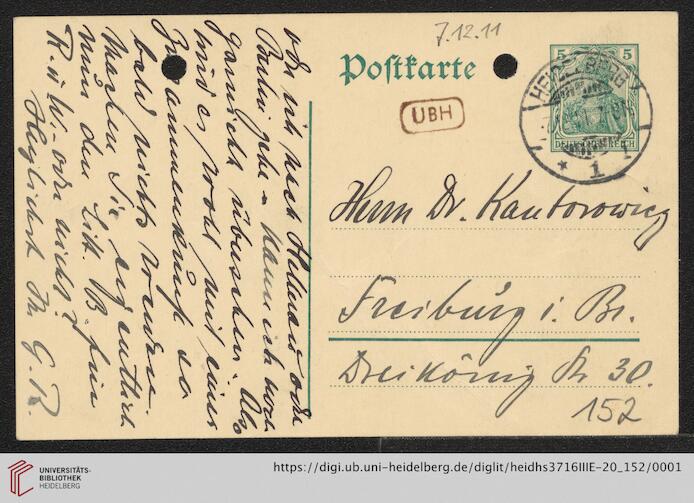 7.12.11
Postkarte
5 5
HEIDELBERG
1
DEUTSCHES REICH
UBH
Herrn Dr. Kantorowicz
Freiburg i. Br.
Dreikönig Str 30.
152
oder ich nach Holland oder
Berlin gehe - kann ich noch
garnicht übersehen. Also
wird es wohl mit einer
Zusammenkunft so
bald nichts werden.
Machen Sie eigentlich
nun den Litt. B. für
R. u W. oder nicht?
Herzlichst Ihr G. R.
UNIVERSITÄTS-
BIBLIOTHEK
HEIDELBERG
https://digi.ub.uni-heidelberg.de/diglit/heidhs3716IIIE-20_152/0001